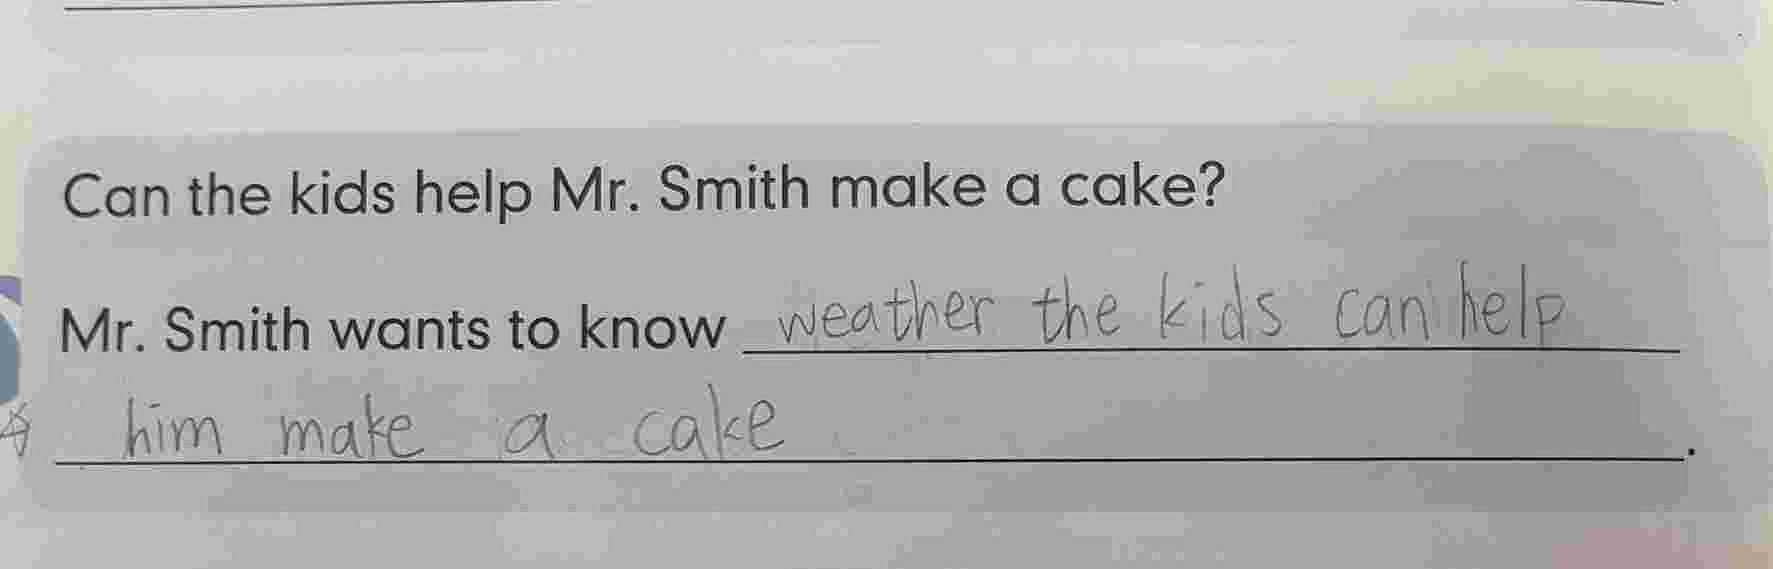 Can the kids help Mr. Smith make a cake?
Mr. Smith wants to know weather the kids can help
him make a cake.